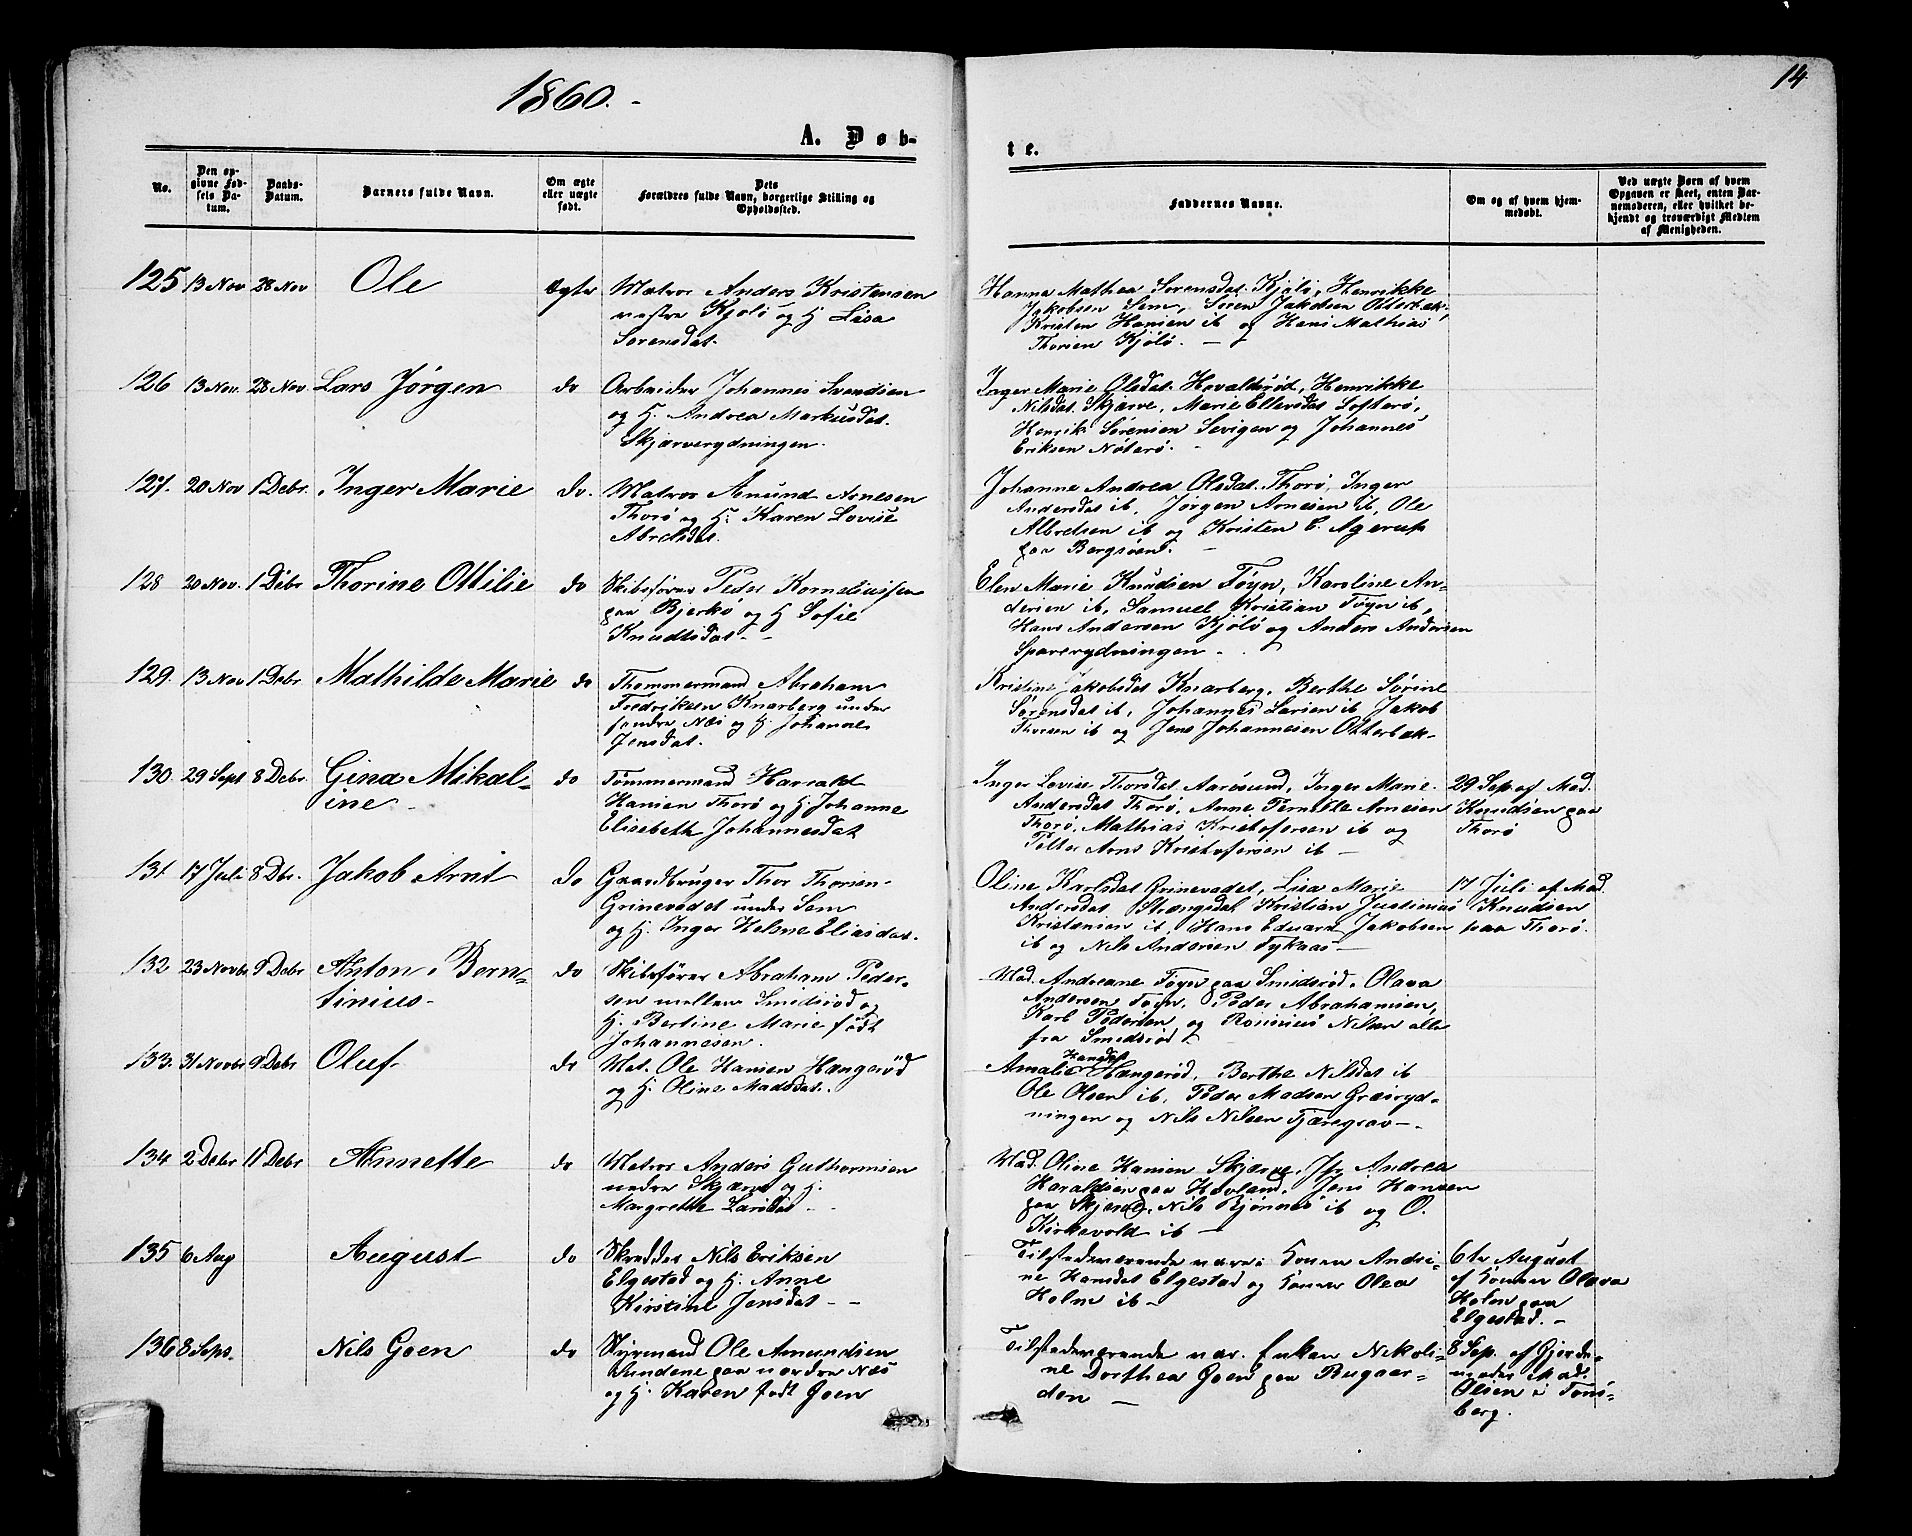 1860.-
14
A. Døb-
te.
No.
Den op-
givne Fød-
sels Da-
tum.
Daabs-
Datum.
Barnets fulde Navn.
Om ægte
eller uægte
født.
Dets
Forældres fulde Navn, borgerlige Stilling og
Opholdssted.
Faddernes Navne.
Om og af hvem hjem-
medøbt.
Ved uægte Børn af hvem
Opgaven er skeet, enten Bar-
nemoderen, eller hvilket be-
kjendt og troværdigt Medlem
af Menigheden.
125 13 Nov 28 Nov Ole ægte Matros Anders Kristensen
vestre Kjølø og H. Lisa
Sørensdat.
Hanna Mathea Sørensdat. Kjølø, Henrikke
Jakobsen Sem, Søren Jakobsen Otterbæk,
Kristen Hansen ib og Hans Mathias
Thorsen Kjølø. -
126 13 Nov. 28 Nov. Lars Jørgen do Arbeider Johannes Svendsen
og H. Andrea Markusdat.
Skjærverydningen.
Inger Marie Olsdat. Hovaldsrød, Henrikke
Nilsdat. Skjærve, Marie Ellevsdat Lofterø,
Henrik Sørensen Sevigen og Johannes
Eriksen Nøterø. -
127. 20 Nov 1 Debr. Inger Marie do. Matros Amund Arnesen
Thorø og H. Karen Lovise
Abrelsdat.
Johanne Andrea Olsdat. Thorø, Inger
Andersdat ib, Jørgen Arnesen ib, Ole
Albretsen ib og Kristen C. Agerup
paa Bergsøend. -
128 20 Nov. 1 Debr Thorine Ottilie do Skibsfører Peder Korneliussen
paa Bjerkø og H Sofie
Knudtsdat- -
Elen Marie Knudsen Føyn, Karoline An-
dersen ib, Samuel Kristian Føyn ib,
Hans Andersen Kjølø og Anders Andersen
Sparerydningen -
129. 13 Nov 1 Debr Mathilde Marie do Thømmermand Abraham
Fredriksen Knarberg under
søndre Næs og H. Johanne
Jensdat.
Kristine Jakobsdat Knarberg, Berthe Sørine
Sørensdat ib, Johannes Larsen ib Jakob
Thorsen ib og Jens Johannesen Otterbæk-
130. 29 Sept 8 Debr. Gina Mikal-
ine - do Tømmermand Harrald
Hansen Thorø og H. Johanne
Elisabeth Johannesdat
Inger Lovise Thorsdat Aarøsund, Inger Marie
Andersdat Thorø, Anne Pernille Arnesen
Thorø, Mathias Kristofersen ib og
Petter Arns Kristofersen ib -
29 Sep af Mad.
Knudsen paa
Thorø
131 17 Juli 8 Dbr. Jakob Arnt do Gaardbruger Thor Thorsen-
Grinevødet under Sem
og H. Inger Helene Eliasdat.
Oline Karlsdat Grinevødet, Lisa Marie
Andersdat Stængsdal Kristian Justinius
Kristensen ib, Hans Edvard Jakobsen
ib og Nils Andersen Tykaas -
17 Juli af Mad.
Knudsen
paa Thorø.
132 23 Novbr 9 Debr Anton Bern-
tinius- do Skibsfører Abraham Peder-
sen mellem Smidsrød og
H. Bertine Marie født
Johannesen.
Mad. Andreane Føyn paa Smidsrød. Olava
Andersen Føyn. Peder Abrahamsen,
Karl Pedersen og Rasmus Nilsen alle
fra Smidsrød.
133. 31 Novbr 9 Debr Oluf- do Mat. Ole Hansen Hængerød
og H. Oline Madsdat.
Amalie Hansdat Hængerød, Berthe Nilsdat ib
Ole Olsen ib, Peder Madsen Græsryd-
ningen og Nils Nilsen Tjæregrav-.
134 2 Debr 11 Debr Annette do Matros Anders Guthormsen
nedre Skjærve og H.
Margrethe Larsdat - -
Mad. Oline Hansen Skjærve, Jfr Andrea
Haraldsen paa Hovland, Jens Hansen
paa Skjerve, Nils Bjønnes ib og O.
Kirkevold ib -
135 6 Aug August do Skrædder Nils Eriksen
Elgestad og H. Anne
Kirstine Jensdat - -
Tilstedeværende vare: Konen Andri-
ne Hansdat Elgestad og Konen Olea
Holm ib -
6te August
af Konen Olava
Holm paa
Elgestad. -
136 8 Sept. Nils Goen do Styrmand Ole Amundsen
Vundene paa nordre Næs
og H. Karen født Goen
Tilstedeværende var. Enken Nikoli-
ne Dorthea Goen paa Rugaar-
den -
8 Sep. af Gjorde-
moder Mad.
Olsen i Tøns-
berg.